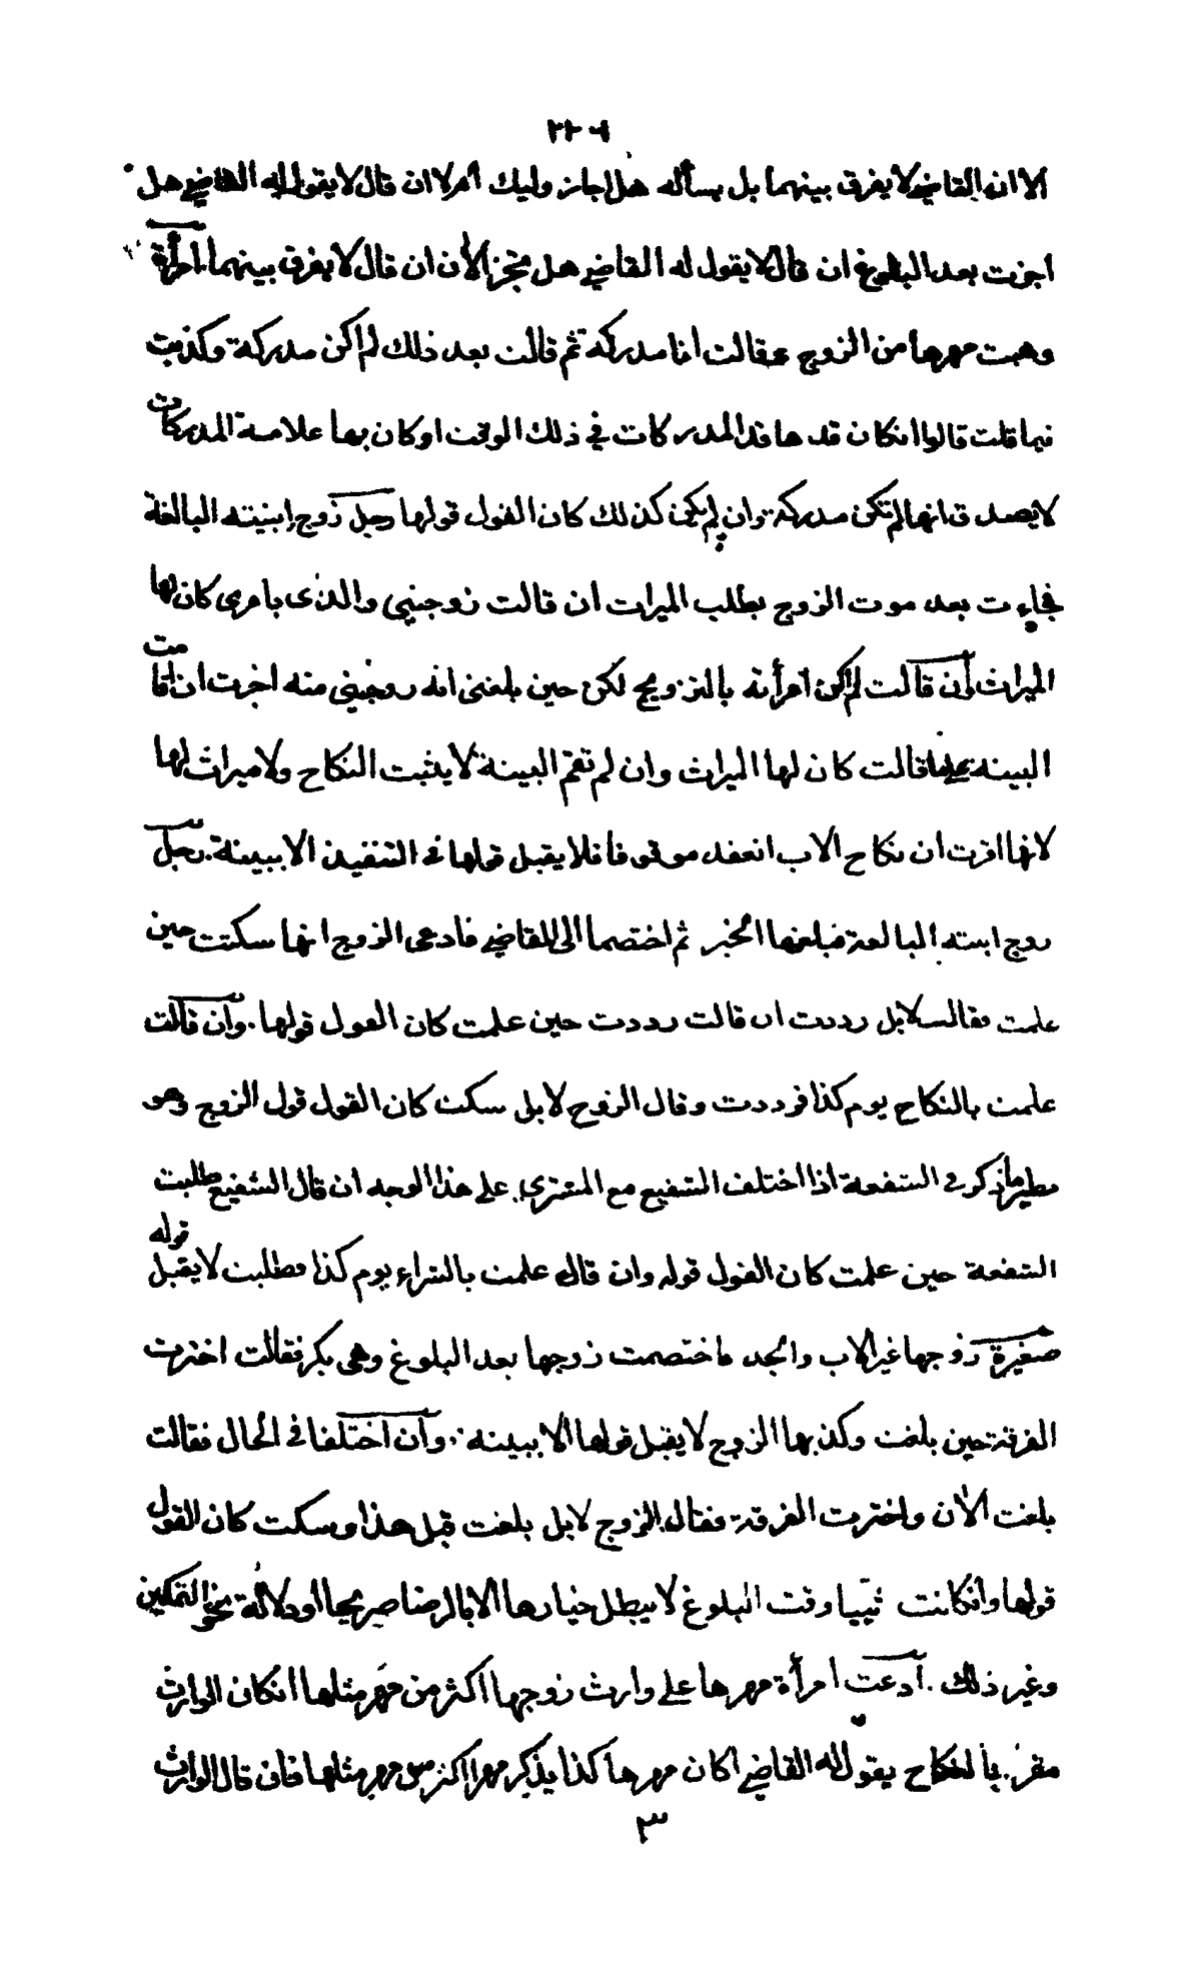 الا ان القاضي لا يفرق بينهما بل يسأله هل اجاز وليك ام لا ان قال لا يقول له القاضي هل
اجزت بعد البلوغ ان قال لا يقول له القاضي هل تجيز الآن ان قال لا يفرق بينهما امرأة
وهبت مهرها من الزوج فقالت انا مدركة ثم قالت بعد ذلك لم اكن مدركة وكذبت
فيما قلت قالوا انكان قدها قد المدركات في ذلك الوقت او كان بها علامة المدركات
لا يصدق انها لم تكن مدركة وان لم يكن كذلك كان القول قولها رجل زوج ابنته البالغة
فجاءت بعد موت الزوج بطلب الميراث ان قالت زوجني والدى بامرى كان لها
الميراث وان قالت لم اكن امرأته بالتزويج لكن حين بلغنى انه زوجني منه اجزت ان اقامت
البينة على ما قالت كان لها الميراث وان لم تقم البينة لا يثبت النكاح ولا ميراث لها
لانها اقرت ان نكاح الاب انعقد موقوفا فلا يقبل قولها في التنفيذ الا ببينة. رجل
زوج ابنته البالغة فبلغها الخبر ثم اختصما الى القاضي فادعى الزوج انها سكتت حين
علمت فقالت لا بل رددت ان قالت رددت حين علمت كان القول قولها. وان قالت
علمت بالنكاح يوم كذا فرددت وقال الزوج لا بل سكت كان القول قول الزوج وهو
نظير ما ذكر في الشفعة اذا اختلف الشفيع مع المشتري على هذا الوجه ان قال الشفيع طلبت
الشفعة حين علمت كان القول قوله وان قال علمت بالشراء يوم كذا فطلبت لا يقبل قوله
صغيرة زوجها غير الاب والجد فاختصمت زوجها بعد البلوغ وهى بكر فقالت اخترت
الفرقة حين بلغت وكذبها الزوج لا يقبل قولها الا ببينة. وان اختلفا في الحال فقالت
بلغت الآن واخترت الفرقة فقال الزوج لا بل بلغت قبل هذا وسكت كان القول
قولها وانكانت ثيبا وقت البلوغ لا يبطل خيارها الا بالرضا صريحا او دلالة نحو التمكين
وغير ذلك. ادعت امرأة مهرها على وارث زوجها اكثر من مهر مثلها انكان الوارث
مقر. بالنكاح يقول له القاضي اكان مهرها كذا يذكر مهرا اكثر من مهر مثلها فان قال الوارث
٣